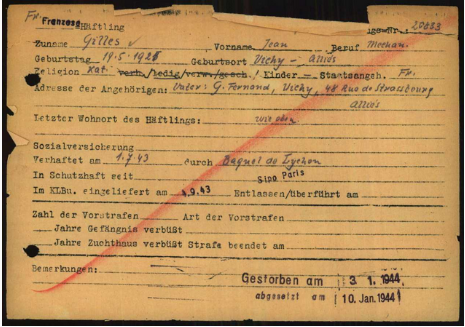 Fr. Franzose Häftling 20033
Zuname Gilles Vorname Jean Beruf Mechan.
Geburtstag 19.5.1925 Geburtsort Vichy - Allies
Religion Kat. verh./ledig/verw./gesch. Kinder — Staatsangeh. Fr.
Adresse der Angehörigen: Vater: G. Fernand, Vichy, 48 Rue de Strassbourg
Allies
Letzter Wohnort des Häftlings: wie oben
Sozialversicherung
Verhaftet am 1.7.43 durch
In Schutzhaft seit Sipo Paris
Im KLBu. eingeliefert am 4.9.43 Entlassen/überführt am
Zahl der Vorstrafen Art der Vorstrafen
Jahre Gefängnis verbüßt
Jahre Zuchthaus verbüßt Strafe beendet am
Bemerkungen:
Gestorben am 3. 1. 1944
abgesetzt am 10. Jan. 1944